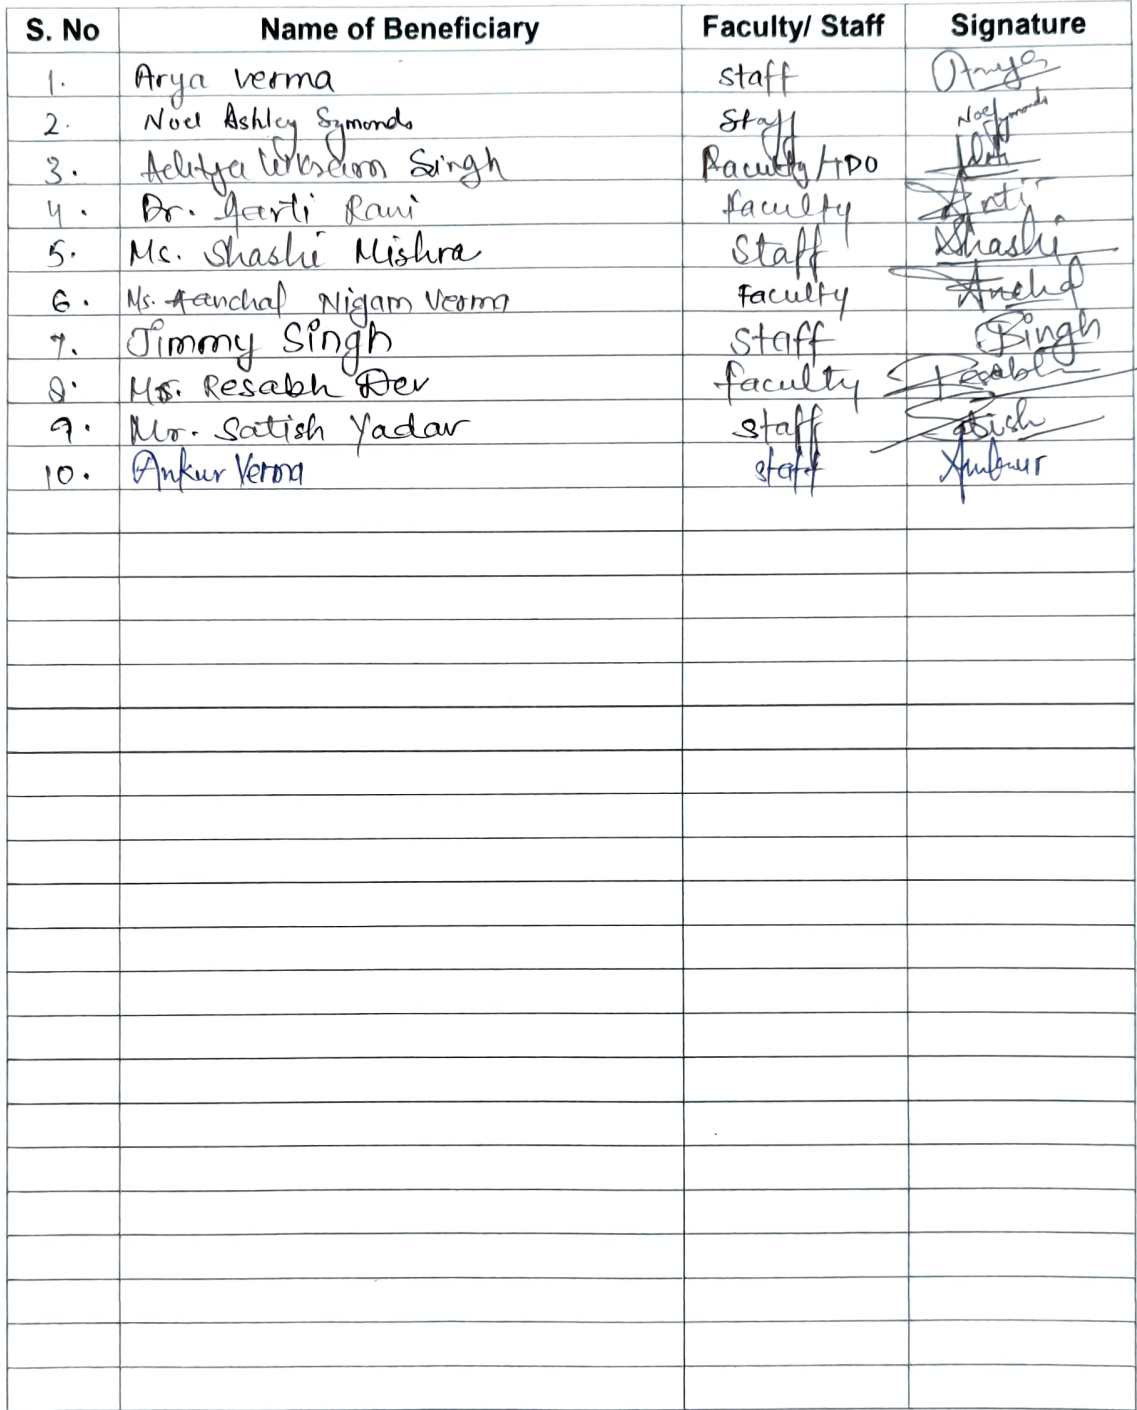 S. No Name of Beneficiary Faculty/ Staff Signature
1. Arya verma staff Arya
2. Noel Ashley Symonds Staff Noel Symonds
3. Aditya Vikram Singh Faculty/TPO
4. Dr. Aarti Rani faculty Arti
5. Ms. Shashi Mishra Staff Shashi
6. Ms. Aanchal Nigam Verma Faculty Anchal
7. Jimmy Singh Staff Singh
8. Mr. Resabh Dev faculty Resabh
9. Mr. Satish Yadav staff Satish
10. Ankur Verma staff Ankur